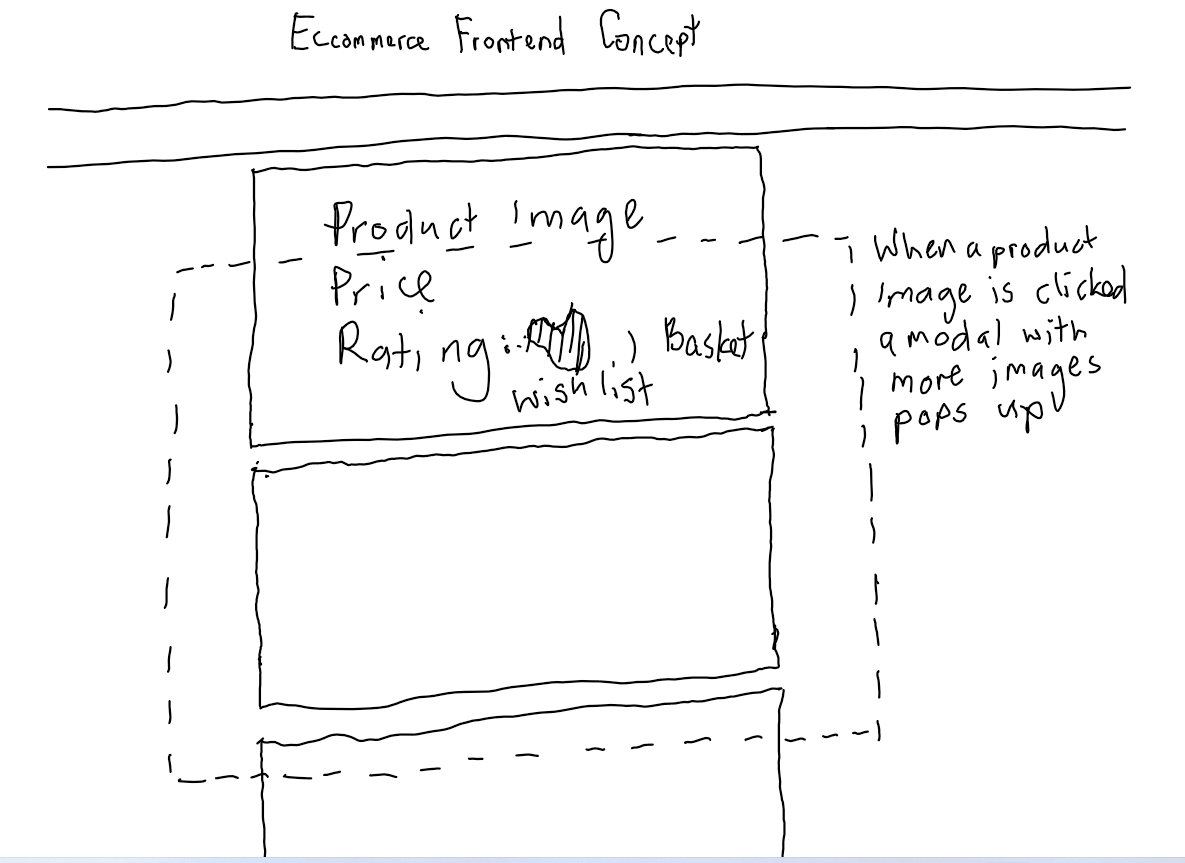 Eccommerce Frontend Concept
Product Image
Price
Rating
Basket
wish list
When a product
image is clicked
a modal with
more images
pops up